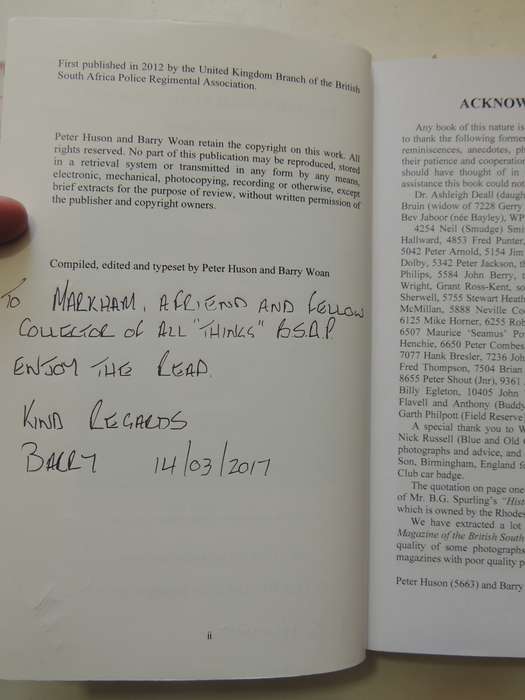 First published in 2012 by the United Kingdom Branch of the British
South Africa Police Regimental Association.
Peter Huson and Barry Woan retain the copyright on this work. All
rights reserved. No part of this publication may be reproduced, stored
in a retrieval system or transmitted in any form by any means,
electronic, mechanical, photocopying, recording or otherwise, except
brief extracts for the purpose of review, without written permission of
the publisher and copyright owners.
Compiled, edited and typeset by Peter Huson and Barry Woan
TO MARKHAM, A FRIEND AND FELLOW
COLLECTOR OF ALL "THINGS" B.S.A.P.
ENJOY THE READ.
KIND REGARDS
BARRY 14/03/2017
ii
ACKNOW
Any book of this nature is
to thank the following former
reminiscences, anecdotes, ph
their patience and cooperation
should have thought of in
assistance this book could not
Dr. Ashleigh Deall (daugh
Bruin (widow of 7228 Gerry
Bev Jaboor (née Bayley), WP
4254 Neil (Smudge) Smi
Hallward, 4853 Fred Punter,
5042 Peter Arnold, 5154 Jim
Dolby, 5342 Peter Jackson, th
Philips, 5584 John Berry, t
Wright, Grant Ross-Kent, so
Sherwell, 5755 Stewart Heath,
McMillan, 5888 Neville Co
6125 Mike Horner, 6255 Rob
6507 Maurice 'Seamus' Po
Henchie, 6650 Peter Combes
7077 Hank Bresler, 7236 Joh
Fred Thompson, 7504 Brian
8655 Peter Shout (Jnr), 9361
Billy Egleton, 10405 John
Flavell and Anthony (Buddy
Garth Philpott (Field Reserve)
A special thank you to W
Nick Russell (Blue and Old
photographs and advice, and
Son, Birmingham, England fo
Club car badge.
The quotation on page one
of Mr. B.G. Spurling's "Hist
which is owned by the Rhodes
We have extracted a lot
Magazine of the British South
quality of some photographs
magazines with poor quality p
Peter Huson (5663) and Barry